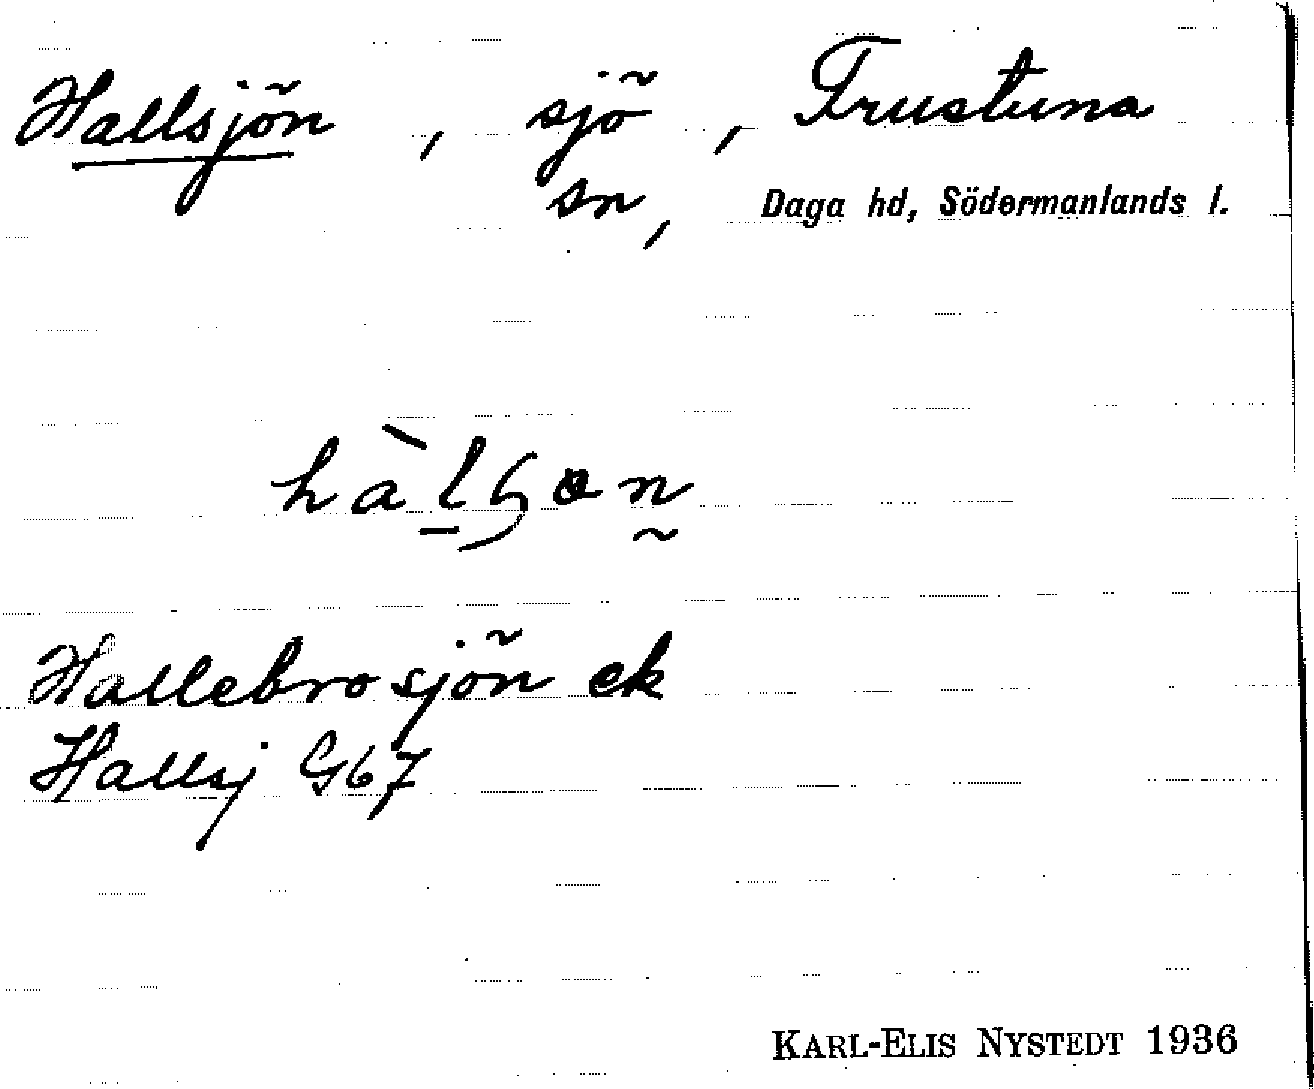 Hallsjön, sjö, Frustuna
sn, Daga hd, Södermanlands l.
Hallebrosjön ek
Hallsj G67
KARL-ELIS NYSTEDT 1936